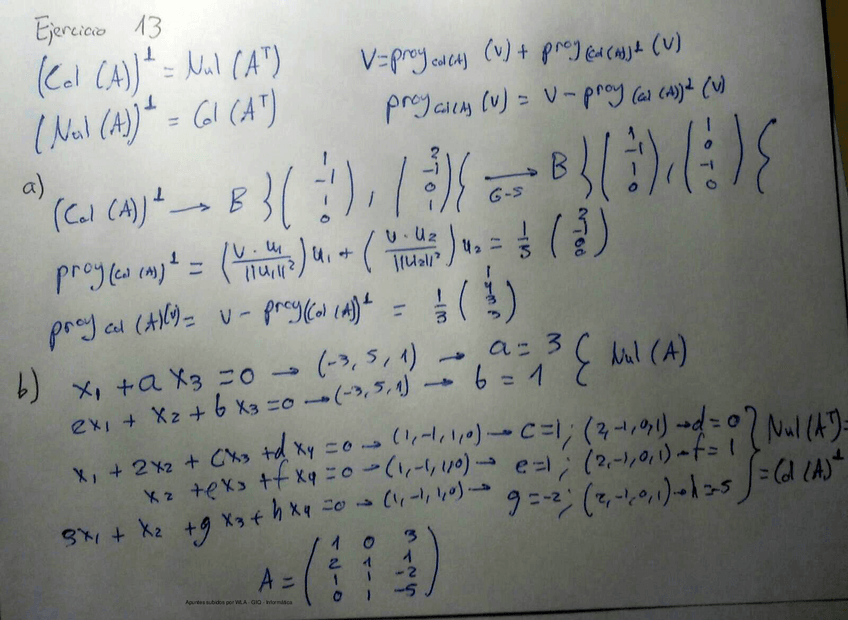 Ejercicio 13
(Col (A))^⊥ = Nul (A^T)
(Nul (A))^⊥ = Col (A^T)
V = proy_Col(A) (V) + proy_(Col(A))^⊥ (V)
proy_Col(A) (V) = V - proy_(Col(A))^⊥ (V)
a) (Col (A))^⊥ → B { (1, -1, 1, 0), (2, -1, 0, 1) } →_G-S B { (1, -1, 1, 0), (1, 0, -1, 0) }
proy_(Col(A))^⊥ = (V · u₁ / ||u₁||²) u₁ + (V · u₂ / ||u₂||²) u₂ = 1/3
proy_Col(A)(V) = V - proy_(Col(A))^⊥ = 1/3
b) x₁ + a x₃ = 0 → (-3, 5, 1) → a = 3 } Nul (A)
ex₁ + x₂ + b x₃ = 0 → (-3, 5, 1) → b = 1
x₁ + 2x₂ + cx₃ + dx₄ = 0 → (1, -1, 1, 0) → c = 1; (2, -1, 0, 1) → d = 0 } Nul (A^T) =
x₂ + ex₃ + fx₄ = 0 → (1, -1, 1, 0) → e = 1; (2, -1, 0, 1) → f = 1 = Col (A)^⊥
3x₁ + x₂ + gx₃ + hx₄ = 0 → (1, -1, 1, 0) → g = -2; (2, -1, 0, 1) → h = -5
A = (1 0 3
2 1 1
1 1 -2
0 1 -5)
Apuntes subidos por WLA - GIG - Informática